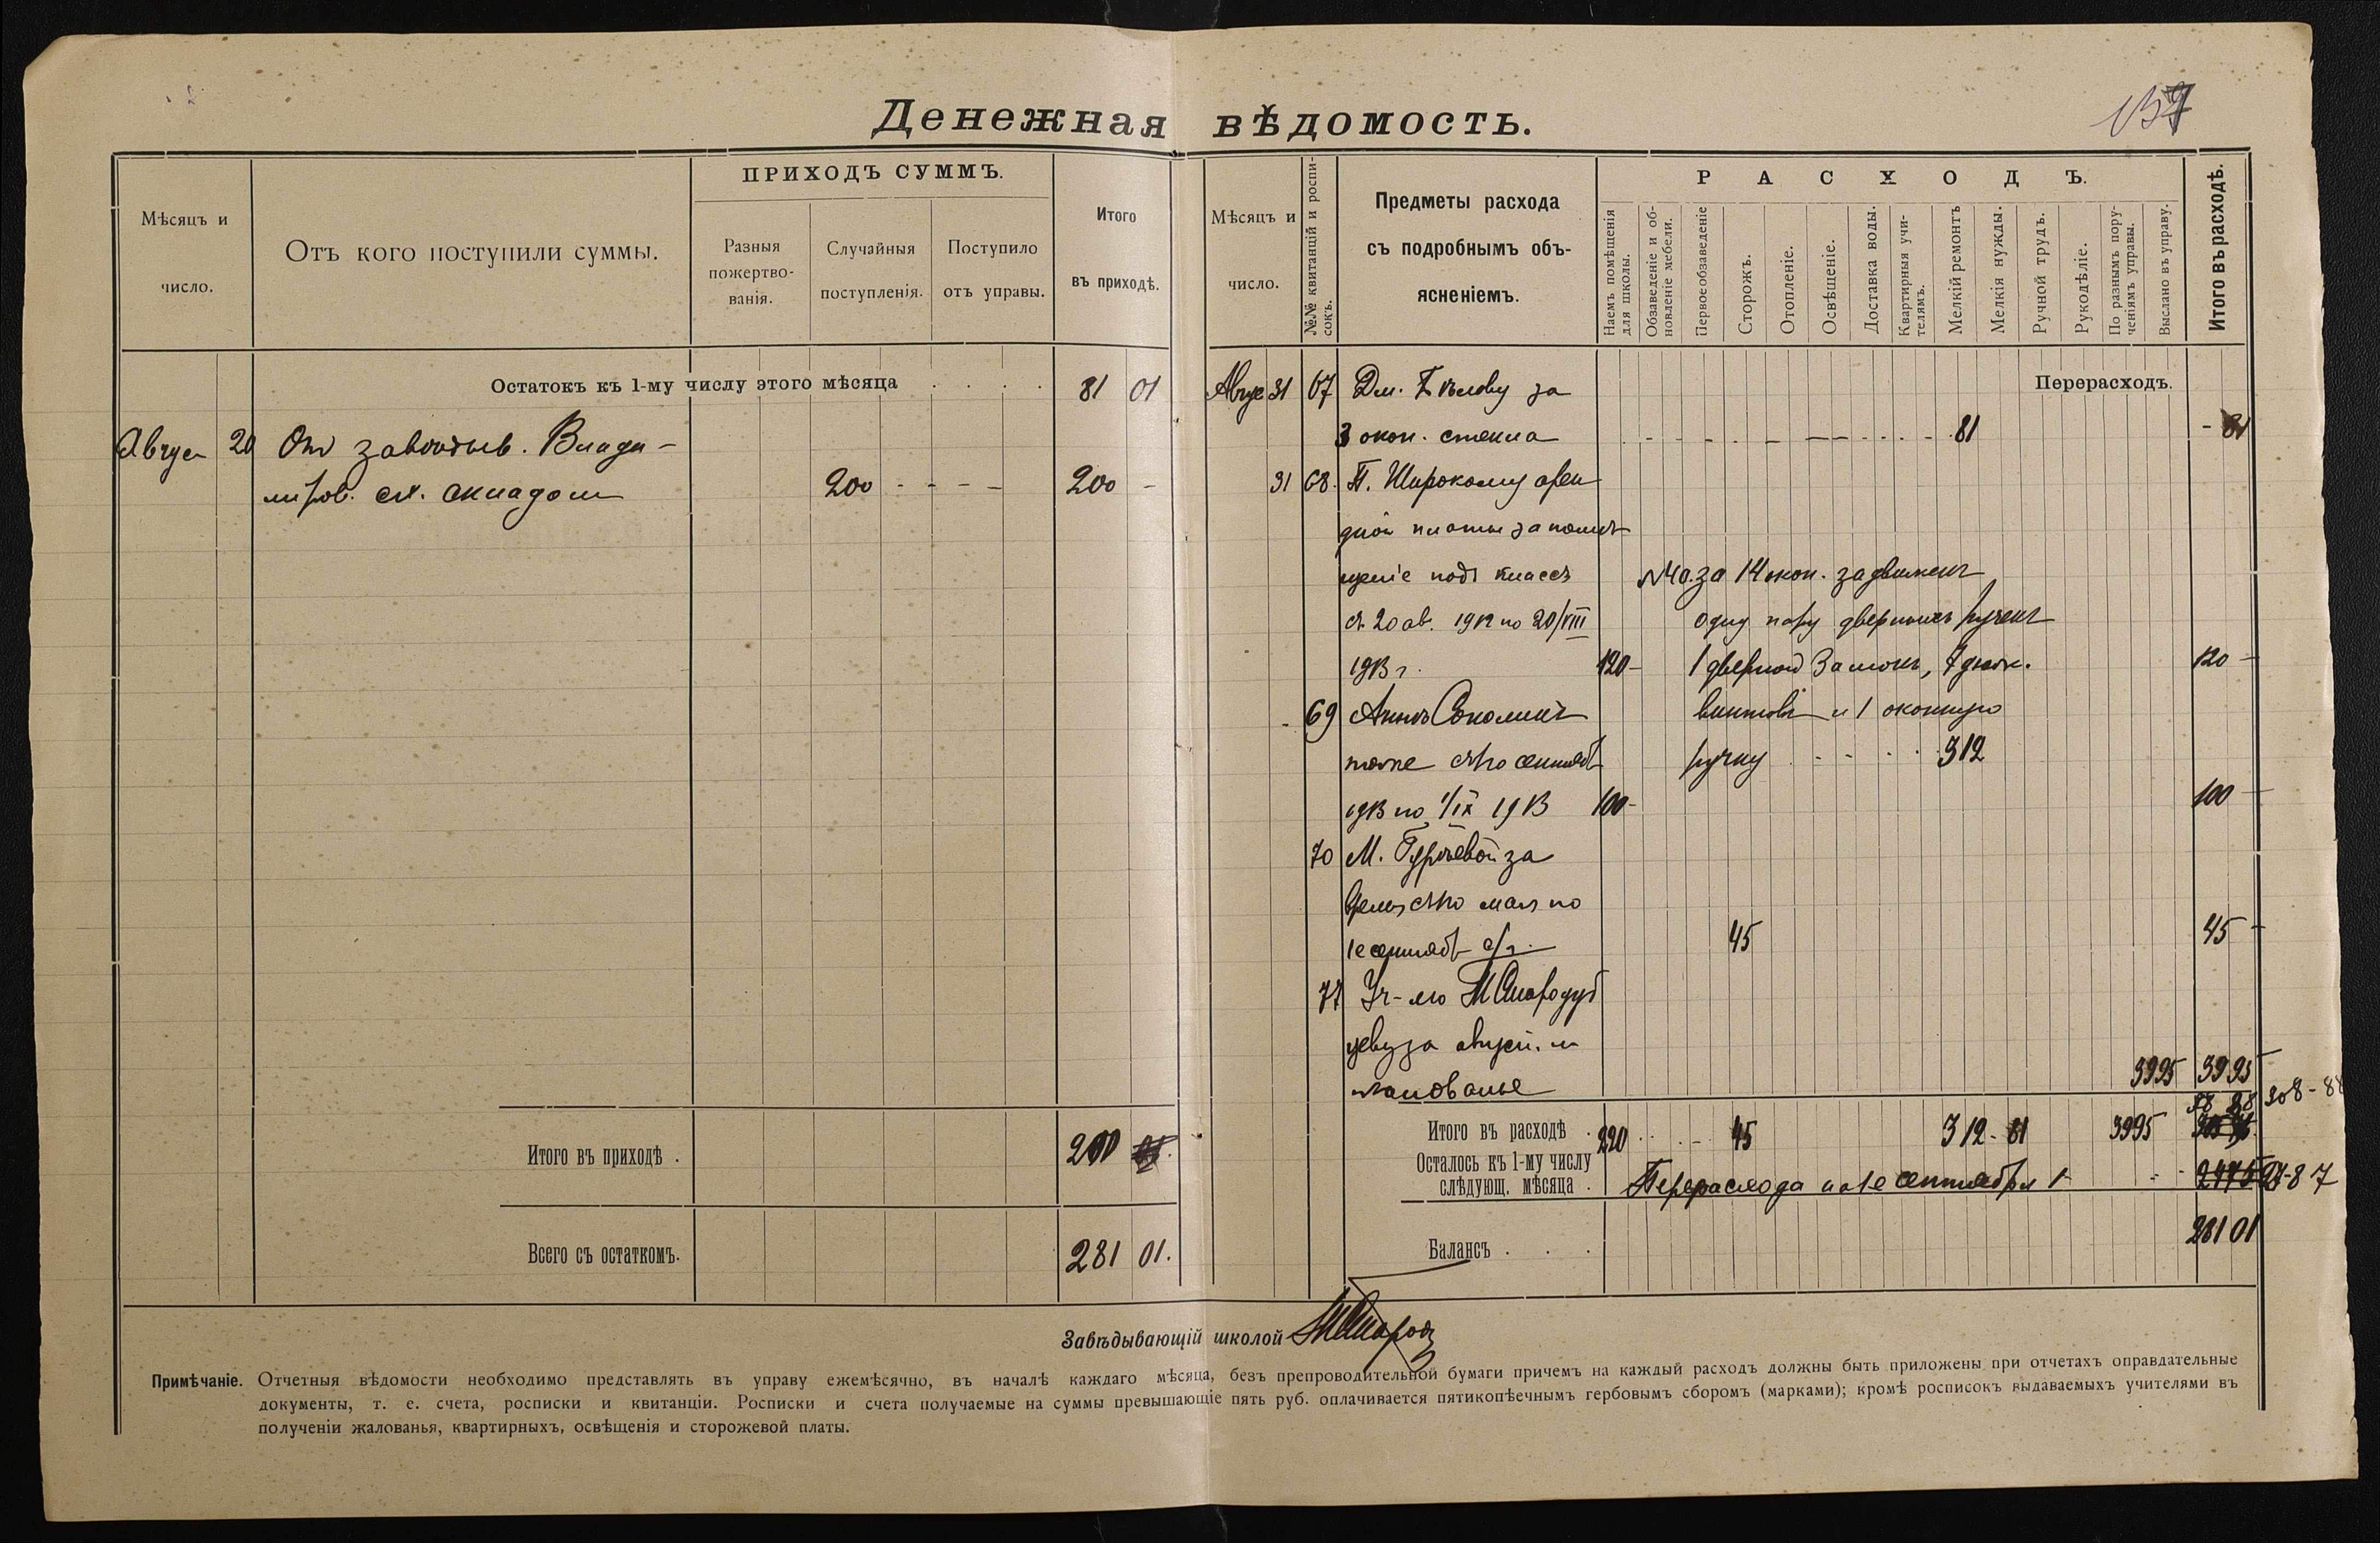 137
Денежная вѣдомость.
Мѣсяцъ и
число.
Отъ кого поступили суммы.
ПРИХОДЪ СУММЪ.
Разныя
пожертво-
ванія.
Случайныя
поступленія.
Поступило
отъ управы.
Итого
въ приходѣ.
Остатокъ къ 1-му числу этого мѣсяца . . . . 81 01
Август 20 От завѣдыв. Влади-
миров. ск. складом 200 - - - - 200 -
Итого въ приходѣ . 200
Всего съ остаткомъ. 281 01.
Мѣсяцъ и
число.
№№ квитанцій и роспи-
сокъ.
Предметы расхода
съ подробнымъ объ-
ясненіемъ.
РАСХОДЪ.
Наемъ помѣщенія
для школы.
Обзаведеніе и об-
новленіе мебели.
Первое обзаведеніе
Сторожъ.
Отопленіе.
Освѣщеніе.
Доставка воды.
Квартирныя учи-
телямъ.
Мелкій ремонтъ
Мелкія нужды.
Ручной трудъ.
Рукодѣліе.
По разнымъ пору-
ченіямъ управы.
Выслано въ управу.
Итого въ расходѣ.
Перерасходъ.
Авгус 31 67 Дм. Бѣлову за
3 окон. стекла 81 - 81
31 68. П. Широкому арен
дной платы за помѣ
щеніе подъ классъ
съ 20 ав. 1912 по 20/VIII
1913 г. 120- 120 -
за 14 окон. задвижекъ
одну пару дверныхъ ручекъ
1 дверной замокъ, дюж.
винтовъ и 1 оконную
ручку 3 12
69 Аннѣ
тоже съ 1го сентяб
1913 по 1/IX 1913 100- 100 -
70 М. за
время съ 1го мая по
1е сентяб с/г. 45 45 -
71 Уч-лю М Стародуб
цеву за август. м
жалованье 39 95 39 95
308-88
Итого въ расходѣ . 220 - 45 3 12 - 81 39 95
Осталось къ 1-му числу
слѣдующ. мѣсяца . Перерасхода на 1е сентября 27-87
Балансъ . . . 281 01
Завѣдывающій школой
Примѣчаніе. Отчетныя вѣдомости необходимо представлять въ управу ежемѣсячно, въ началѣ каждаго мѣсяца, безъ препроводительной бумаги причемъ на каждый расходъ должны быть приложены при отчетахъ оправдательные
документы, т. е. счета, росписки и квитанціи. Росписки и счета получаемые на суммы превышающіе пять руб. оплачивается пятикопѣечнымъ гербовымъ сборомъ (марками); кромѣ росписокъ выдаваемыхъ учителями въ
полученіи жалованья, квартирныхъ, освѣщенія и сторожевой платы.